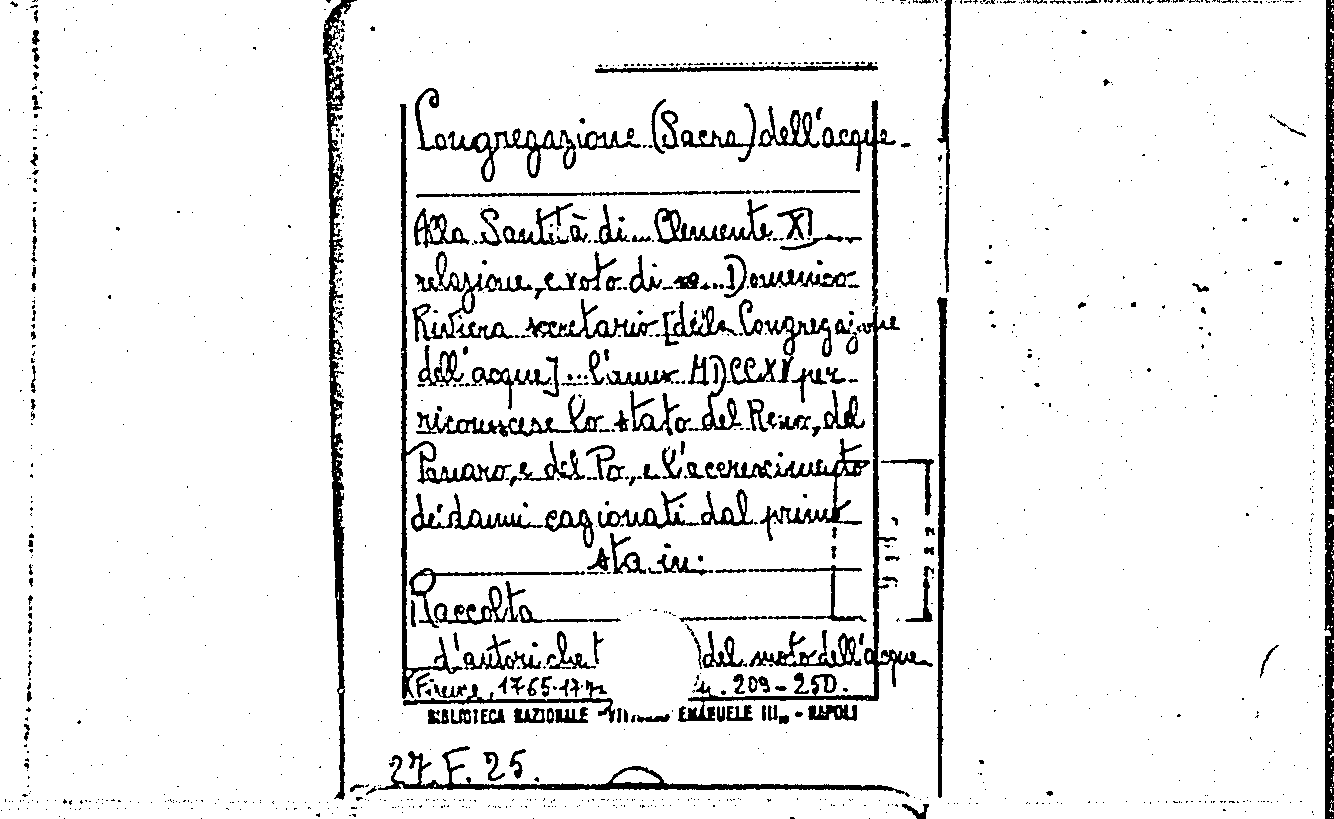 Congregazione (Sacra) dell'acque.
Alla Santità di... Clemente XI...
relazione, e voto di ... Domenico
Riviera secretario [della Congregazione
dell'acque]... l'anno MDCCXV per
riconoscere lo stato del Reno, del
Panaro, e del Po, e l'accrescimento
dei danni cagionati dal primo
sta in:
Raccolta
d'autori che t del moto dell'acque
(Firenze, 1765-177 209-250.
BIBLIOTECA NAZIONALE EMANUELE III - NAPOLI
27.F.25.